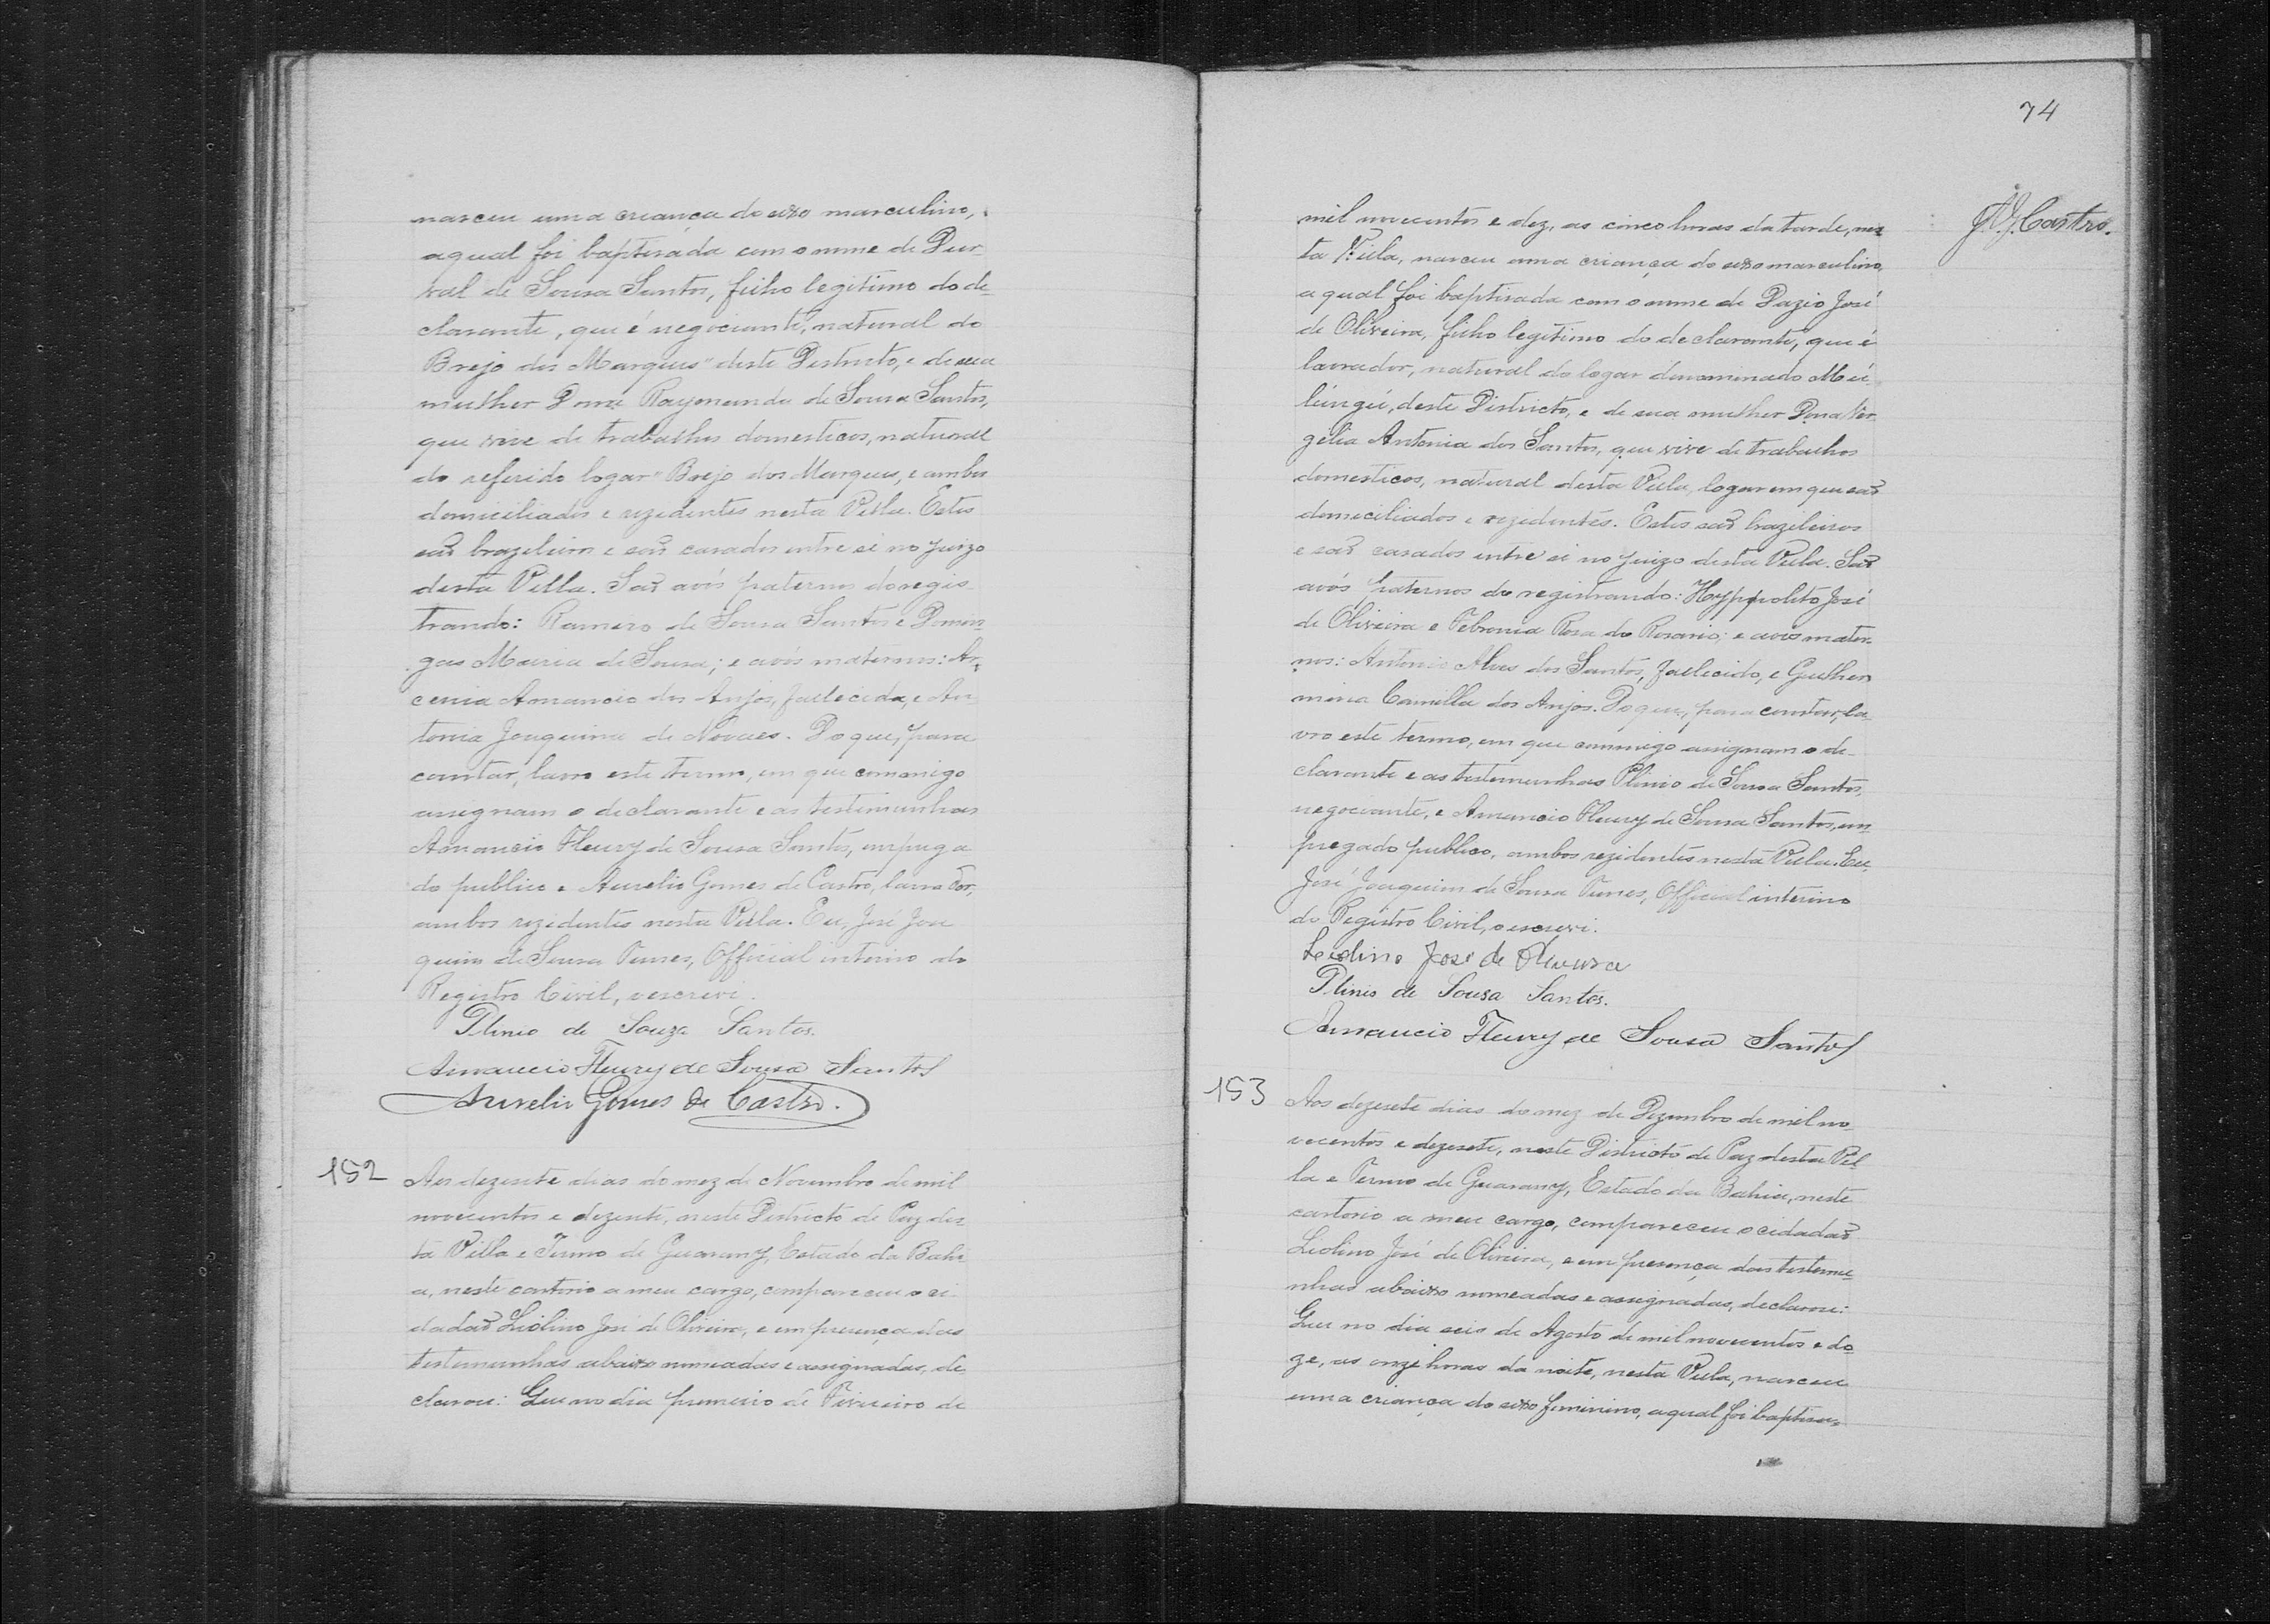 nasceu uma criança do sexo masculino,
a qual foi baptisada com o nome de Dur-
val de Sousa Santos, filho legitimo do de-
clarante, que é negociante, natural do
Brejo dos Marques" deste Districto, e de sua
mulher Dona Raymunda de Sousa Santos,
que vive de trabalhos domesticos, natural
do referido logar "Brejo dos Marques, e ambos
domiciliados e rezidentes nesta Villa. Estes
saõ brazileiros e saõ casados entre si no juizo
desta Villa. Saõ avós paternos do regis-
trando: Ramiro de Sousa Santos e Domin
gas Maria de Sousa; e avós maternos: Ar-
cenia Amancio dos Anjos, fallecida, e An-
tonia Joaquina de Novaes. Do que, para
constar, lavro este termo, em que commigo
assignam o declarante e as testimunhas
Amancio Fleury de Sousa Santos, emprega
do publico e Aurelio Gomes de Castro, lavrador,
ambos rezidentes nesta Villa. Eu, José Joa
quim de Sousa Tunes, Official interino do
Registro Civil, o escrevi.
Plinio de Souza Santos.
Amancio Fleury de Sousa Santos
Aurelio Gomes de Castro.
152 Aos dezesete dias do mez de Novembro de mil
novecentos e dezesete, neste Districto de Paz des
ta Villa e Termo de Guarany, Estado da Bahi
a, neste cartorio a meu cargo, compareceu o ci-
dadaõ Liolino José de Oliveira, e em presença das
testemunhas abaixo nomeadas e assignadas, de
clarou: Que no dia premeiro de Fevereiro de
74
J. G. Castro.
mil novecentos e dez, as cinco horas da tarde, nes
ta Villa, nasceu uma criança do sexo masculino,
a qual foi baptisada com o nome de Dazio José
de Oliveira, filho legitimo do declarante, que é
lavrador, natural do logar denominado Mú-
lúngú, deste Districto, e de sua mulher Dona Vir
gilia Antonia dos Santos, que vive de trabalhos
domesticos, natural desta Villa, logar em que saõ
domeciliados e rezidentes. Estes saõ brazileiros
e saõ casados entre si no juizo desta Villa. Saõ
avós paternos do registrando: Hyppolito José
de Oliveira e Febronia Rosa do Rosario; e avós mater-
nos: Antonio Alves dos Santos, fallecido, e Guilher
mina Camilla dos Anjos. Do que, para constar, la-
vro este termo, em que commigo assignam o de-
clarante e as testemunhas Plinio de Sousa Santos,
negociante, e Amancio Fleury de Sousa Santos, em-
pregado publico, ambos rezidentes nesta Villa. Eu,
José Joaquim de Sousa Tunes, Official interino
do Registro Civil, o escrevi.
Leolino José de Oliveira
Plinio de Sousa Santos.
Amancio Fleury de Sousa Santos
153 Aos dezesete dias do mez de Dezembro de mil no-
vecentos e dezesete, neste Districto de Paz desta Vil
la e Termo de Guarany, Estado da Bahia, neste
cartorio a meu cargo, compareceu o cidadaõ
Liolino José de Oliveira, e em presença das testemu-
nhas abaixo nomeadas e assignadas, declarou:
Que no dia seis de Agosto de mil novecentos e do-
ze, as onze horas da noite, nesta Villa, nasceu
uma criança do sexo feminino, a qual foi baptisa-